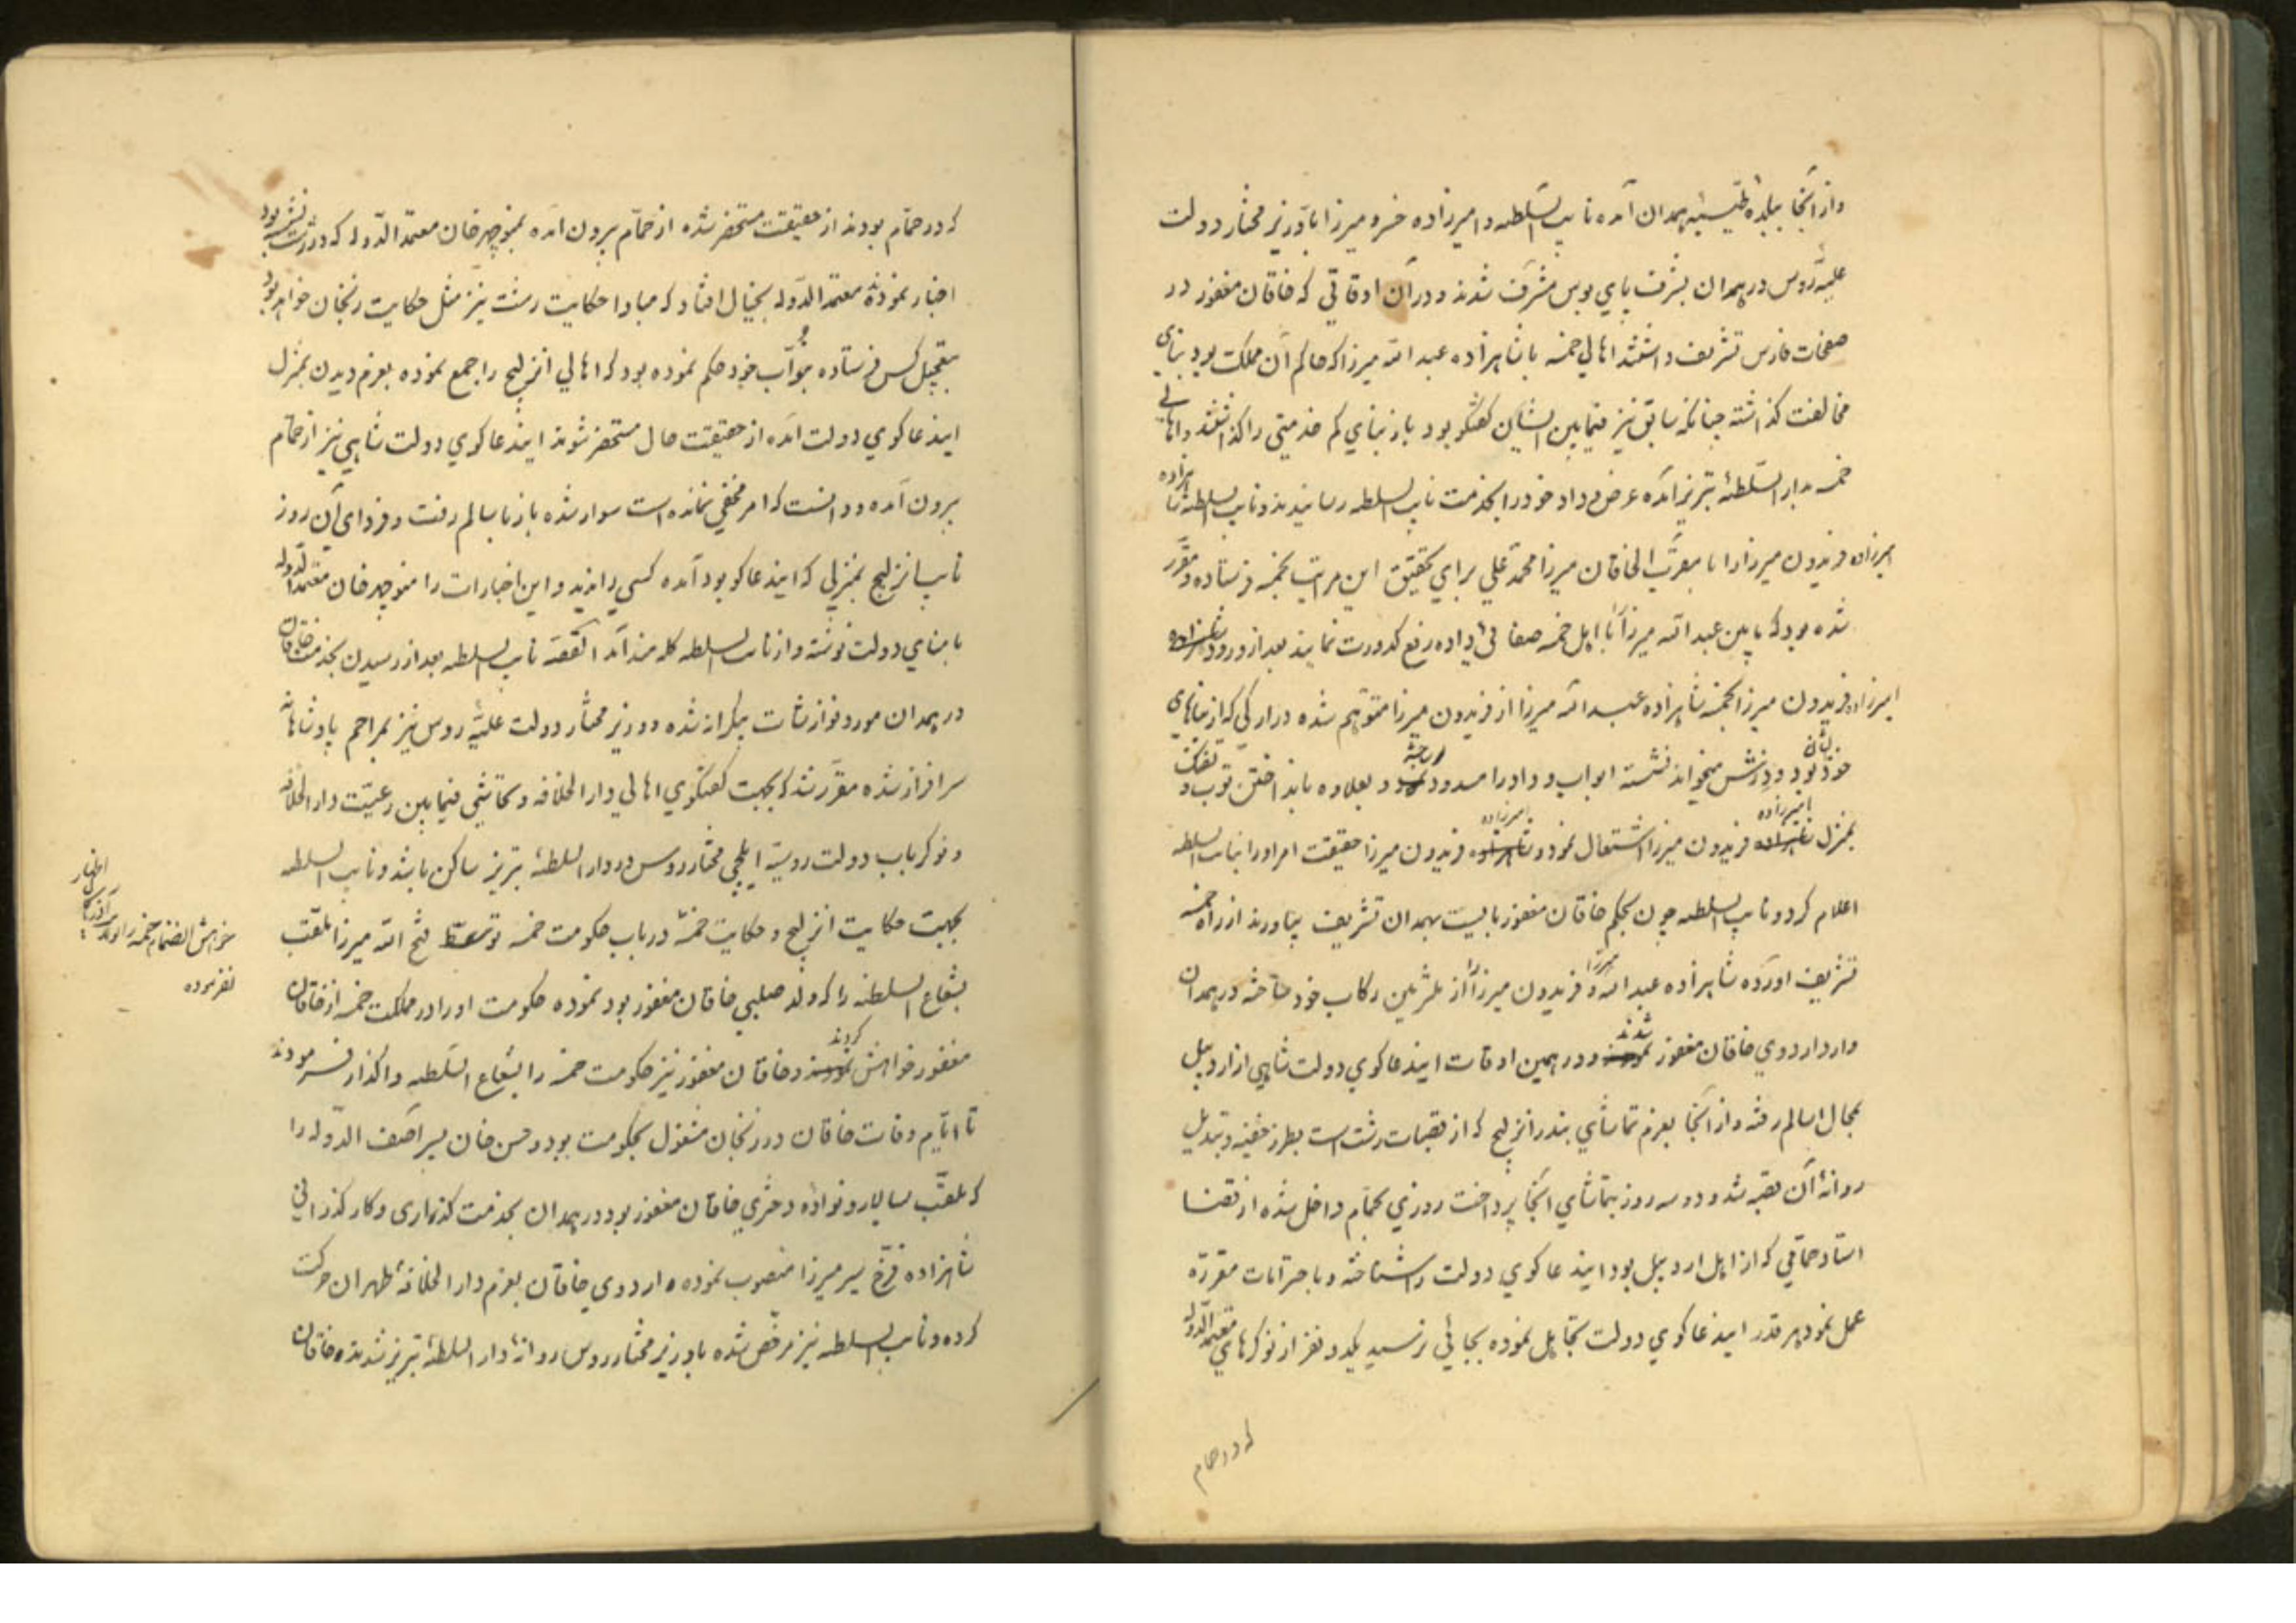 واز آنجا ببلدهٔ طیّبیهٔ همدان آمده نایب السّلطنه و امیرزاده خسرو میرزا با وزیر مختار دولت
علیّهٔ روس در همدان بشرف پای بوس مشرّف شدند و در آن اوقاتی که خاقان مغفور در
صفحات فارس تشریف داشتند اهالی خمسه با شاهزاده عبد الله میرزا که حاکم آن مملکت بود بنای
مخالفت گذاشته چنانکه سابق نیز فیمابین ایشان گفتگو بود باز بنای کم خدمتی را گذاشتند و اهالی
خمسه بدار السّلطنهٔ تبریز آمده عرض و داد خود را بخدمت نایب السلطنه رسانیدند و نایب السلطنه شاهزاده
امیرزاده فریدون میرزا را با مقرّب الخاقان میرزا محمّد علی برای تحقیق این مراتب بخمسه فرستاده و مقرّر
شده بود که مابین عبد الله میرزا با اهل خمسه صفائی داده رفع کدورت نمایند بعد از ورود شاهزاده
امیرزاده فریدون میرزا بخمسه شاهزاده عبد الله میرزا از فریدون میرزا متوهّم شده در ارکی که از بناهای
خودشان بود و دزش میخواند نشسته ابواب و داد را مسدود ساخته و بعلاوه بانداختن توپ و تفنگ
بمنزل شاهزاده امیرزاده فریدون میرزا اشتعال نمود و شاهزاده امیرزاده فریدون میرزا حقیقت امر او را بنایب السلطنه
اعلام کرد و نایب السلطنه چون بحکم خاقان مغفور بایست بهمدان تشریف بیاورند از راه خمسه
تشریف آورده شاهزاده عبد الله میرزا و فریدون میرزا را از ملتزمین رکاب خود ساخته در همدان
وارد اردوی خاقان مغفور نمودند شدند و در همین اوقات ایندعاگوی دولت شاهی از اردبیل
بمحال اسالم رفته و از آنجا بعزم تماشای بندر انزلیج که از قصبات رشت است بطرز خفیه و تبدیل
روانهٔ آن قصبه شد و دو سه روز بتماشای آنجا پرداخت روزی بحمّام داخل شده از قضا
استاد حمّامی که از اهل اردبیل بود ایندعاگوی دولت را شناخته و با احترامات مقرّره
عمل نمود هر قدر ایندعاگوی دولت تجاهل نموده بجائی نرسید یکدو نفر از نوکرهای معتمد الدّوله
که در حمام
که در حمّام بودند از حقیقت مستحضر شده از حمّام بیرون آمده بمنوچهر خان معتمد الدّوله که در رشت بود
اخبار نموده معتمد الدّوله بخیال افتاد که مبادا حکایت رشت نیز مثل حکایت زنجان خواهد بود
بتعجیل کس فرستاده بنوّاب خود حکم نموده بود که اهالی انزلیج را جمع نموده بعزم دیدن بمنزل
ایندعاگوی دولت آمده از حقیقت حال مستحضر شوند ایندعاگوی دولت شاهی نیز از حمّام
بیرون آمده و دانست که امر مخفی نمانده است سوار شده باز باسالم رفت و فردای آن روز
نایب انزلیج بمنزلی که ایندعاگو بود آمده کسی را ندید و این اخبارات را منوچهر خان معتمد الدّوله
بامنای دولت نوشته و از نایب السلطنه گله مند آمد القصّه نایب السلطنه بعد از رسیدن بخدمت خاقان
در همدان مورد نوازشات بیکرانه شده و وزیر مختار دولت علیّهٔ روس نیز بمراحم پادشاهانه
سرافراز شده مقرّر شد که بجهت گفتگوی اهالی دار الخلافه و تحاشی فیمابین رعیّت دار الخلافه
و نوکر باب دولت روسیّه ایلچی مختار روس در دار السلطنهٔ تبریز ساکن باشد و نایب السلطنه
بجهت حکایت انزلیج و حکایت خمسه در باب حکومت خمسه توسّط فتح الله میرزا ملقّب
بشعاع السلطنه را که ولد صلبی خاقان مغفور بود نموده حکومت او را در مملکت خمسه از خاقان
مغفور خواهش نمودند کردند و خاقان مغفور نیز حکومت خمسه را بشعاع السّلطنه واگذار فرمودند
تا ایّام وفات خاقان در زنجان مشغول بحکومت بود و حسن خان پسر آصف الدّوله را
که ملقّب بسالار و نوادهٔ دختری خاقان مغفور بود در همدان بخدمت گذاری و کار گذرانی
شاهزاده فرّخ سیر میرزا منصوب نموده اردوی خاقان بعزم دار الخلافهٔ طهران حرکت
کرده و نایب السلطنه نیز مرخّص شده با وزیر مختار روس روانهٔ دار السلطنهٔ تبریز شدند و خاقان
اظهار
خواهش انضمام خمسه را
نفرموده